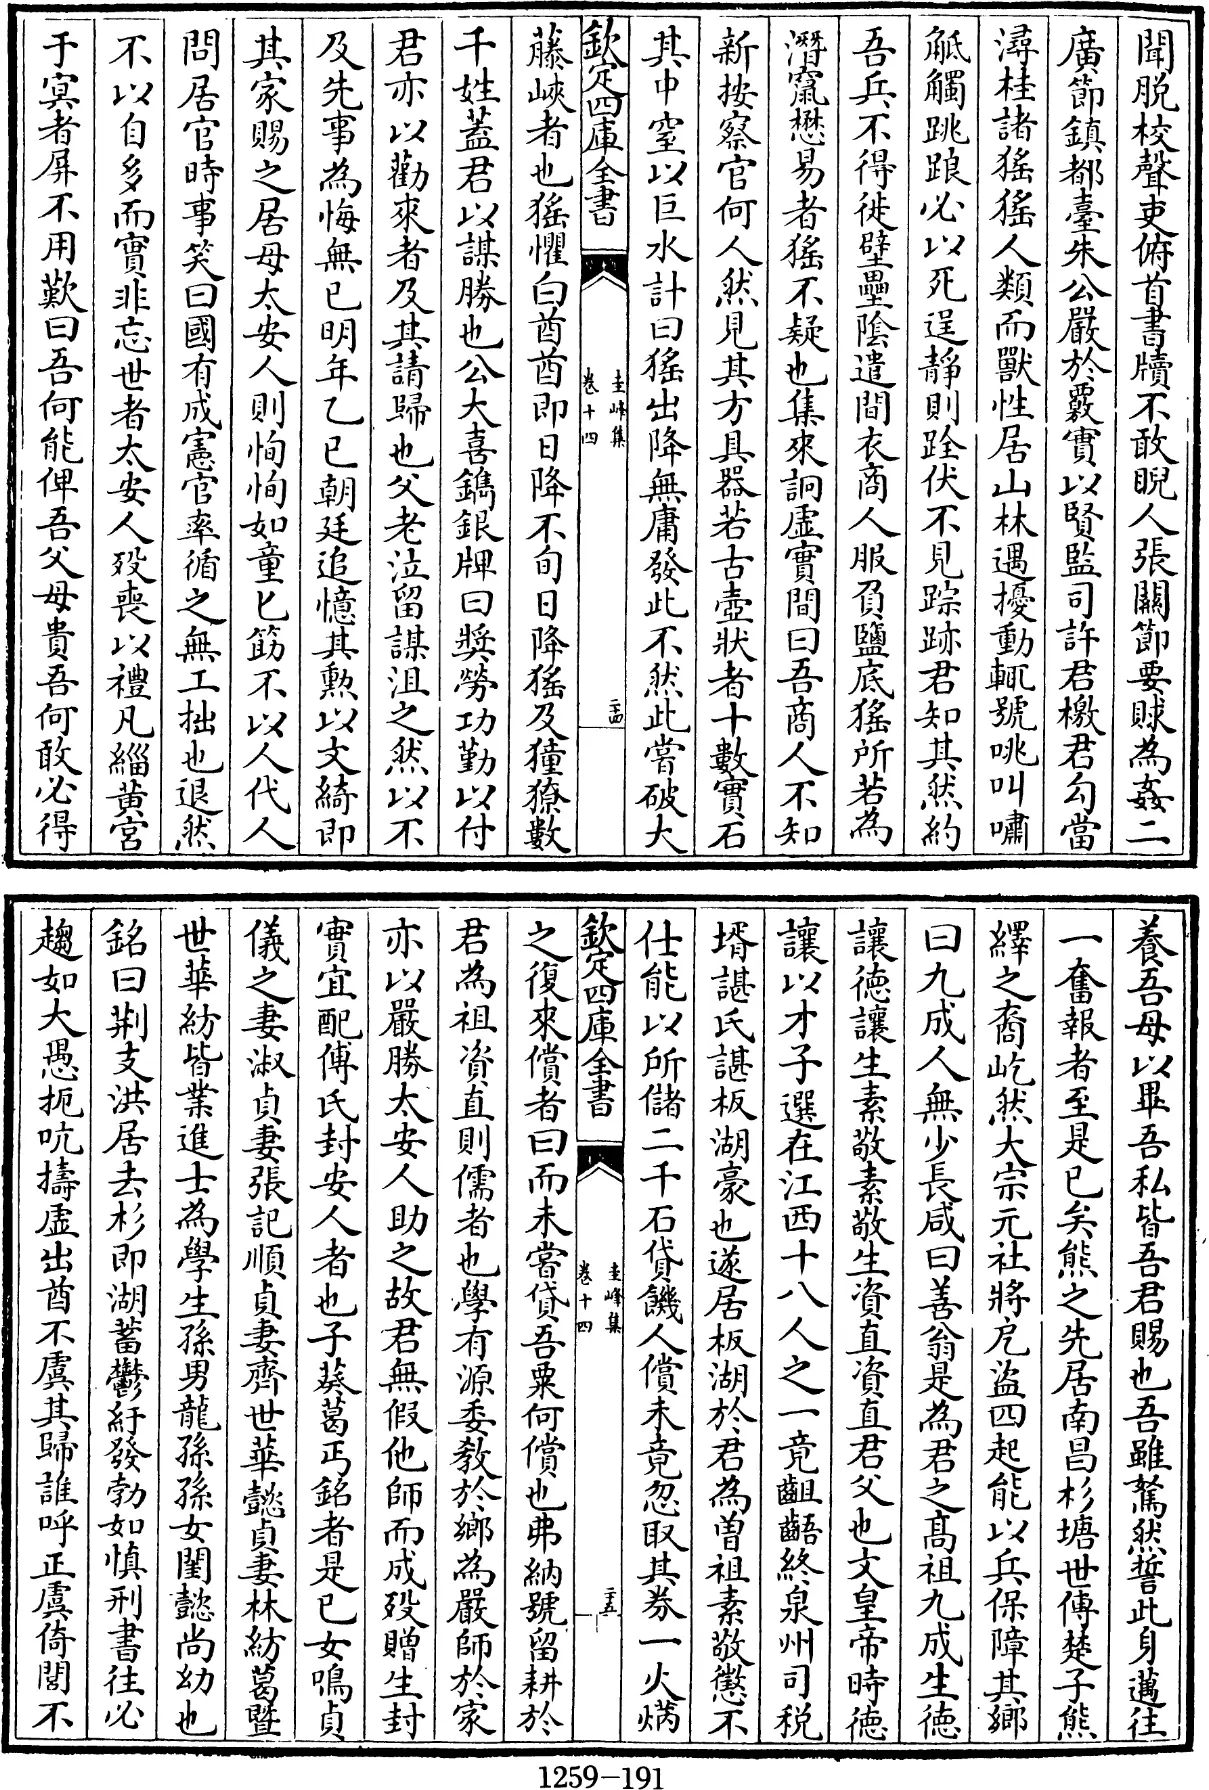 聞脱校聲吏俯首書牘不敢睨人張關節要賕為姦二
廣節鎮都臺朱公嚴於覈實以賢監司許君檄君勾當
潯桂諸猺猺人類而獸性居山林遇擾動輒號咷叫嘯
觝觸跳踉必以死逞靜則跧伏不見踪跡君知其然約
吾兵不得徙壁壘陰遣間衣商人服負鹽底猺所若為
潛竄懋易者猺不疑也集來詗虛實間曰吾商人不知
新按察官何人然見其方具器若古壺狀者十數實石
其中窒以巨水計曰猺出降無庸發此不然此嘗破大
欽定四庫全書
圭峰集
卷十四
二十四
藤峽者也猺懼白酋酋即日降不旬日降猺及獞獠數
千姓蓋君以謀勝也公大喜鐫銀牌曰獎勞功勤以付
君亦以勸來者及其請歸也父老泣留謀沮之然以不
及先事為悔無已明年乙巳朝廷追憶其勲以文綺即
其家賜之居母太安人則恂恂如童匕筯不以人代人
問居官時事笑曰國有成憲官率循之無工拙也退然
不以自多而實非忘世者太安人歿喪以禮凡緇黄宫
于㝠者屏不用歎曰吾何能俾吾父母貴吾何敢必得
養吾母以畢吾私皆吾君賜也吾雖駑然誓此身邁往
一奮報者至是已矣熊之先居南昌杉塘世傳楚子熊
繹之裔屹然大宗元社將戹盜四起能以兵保障其鄉
曰九成人無少長咸曰善翁是為君之高祖九成生德
讓德讓生素敬素敬生資直資直君父也文皇帝時德
讓以才子選在江西十八人之一竟齟齬終泉州司税
壻諶氏諶板湖豪也遂居板湖於君為曽祖素敬懲不
仕能以所儲二千石貸饑人償未竟忽取其券一火焫
欽定四庫全書
圭峰集
卷十四
二十五
之復來償者曰而未嘗貸吾粟何償也弗納號留耕於
君為祖資直則儒者也學有源委教於鄉為嚴師於家
亦以嚴勝太安人助之故君無假他師而成歿贈生封
實宜配傅氏封安人者也子葵葛丐銘者是已女鳴貞
儀之妻淑貞妻張記順貞妻齊世華懿貞妻林紡葛暨
世華紡皆業進士為學生孫男龍孫孫女閨懿尚幼也
銘曰荆支洪居去杉即湖蓄鬱紆發勃如慎刑書往必
趨如大愚扼吭擣虛出酋不虞其歸誰呼正虞倚閭不
1259-191